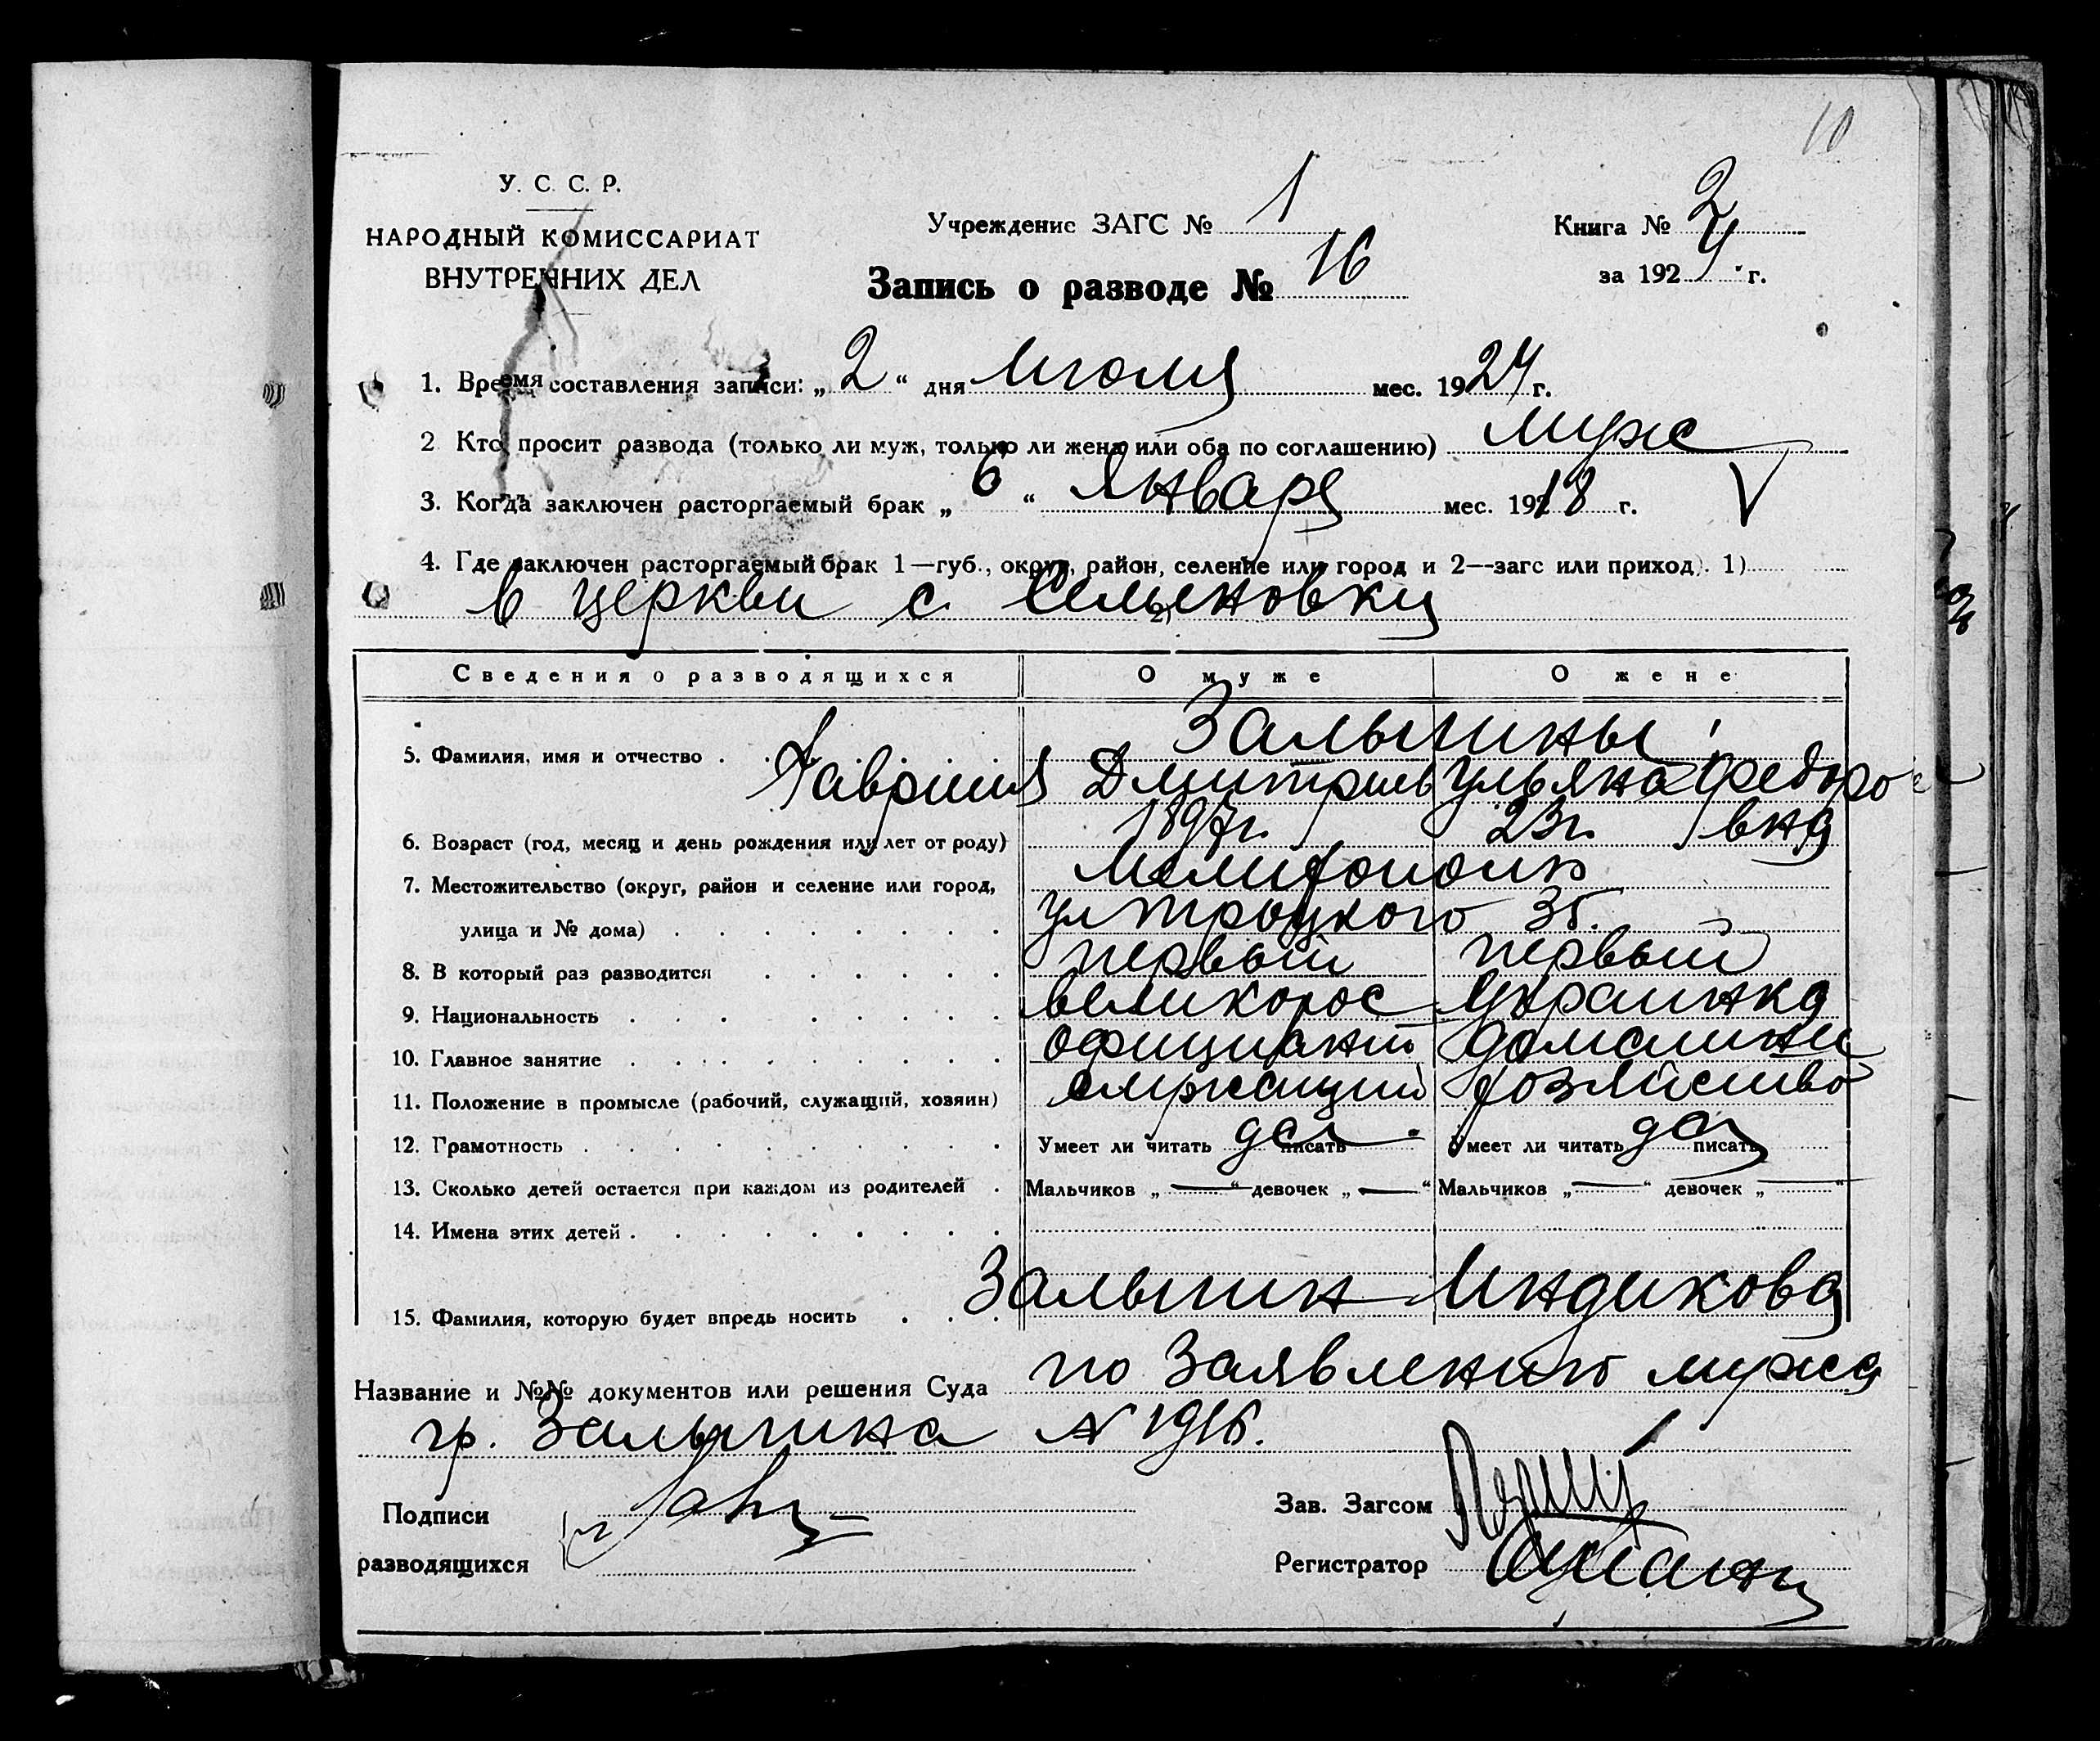 10
У. С. С. Р.
НАРОДНЫЙ КОМИССАРИАТ
ВНУТРЕННИХ ДЕЛ
Учреждение ЗАГС № 1
Запись о разводе № 16
Книга № 2
за 1924 г.
1. Время составления записи: „ 2 “ дня Июля мес. 1924 г.
2 Кто просит развода (только ли муж, только ли жена или оба по соглашению) муж
3. Когда заключен расторгаемый брак „ 6 “ Января мес. 1918 г.
4. Где заключен расторгаемый брак 1—губ., округ, район, селение или город и 2—загс или приход). 1)
в церкви с. Семеновки
2)
Сведения о разводящихся О муже О жене
Залыгины
5. Фамилия, имя и отчество
Гавриил Дмитриев Ульяна Федоро-
6. Возраст (год, месяц и день рождения или лет от роду) 1897г. 23г. вна
7. Местожительство (округ, район и селение или город, Мелитополь
улица и № дома) ул Троцкого 35.
8. В который раз разводится первый первый
9. Национальность великорос Украинка
10. Главное занятие официант домашнее
11. Положение в промысле (рабочий, служащий, хозяин) служащий хозяйство
12. Грамотность Умеет ли читать да писать Умеет ли читать да писать
13. Сколько детей остается при каждом из родителей Мальчиков „ — “ девочек „ — “ Мальчиков „ — “ девочек „ — “
14. Имена этих детей
15. Фамилия, которую будет впредь носить Залыгин Индикова
Название и №№ документов или решения Суда по заявлению мужа
гр. Залыгина N 1916.
Подписи
разводящихся
Зав. Загсом
Регистратор